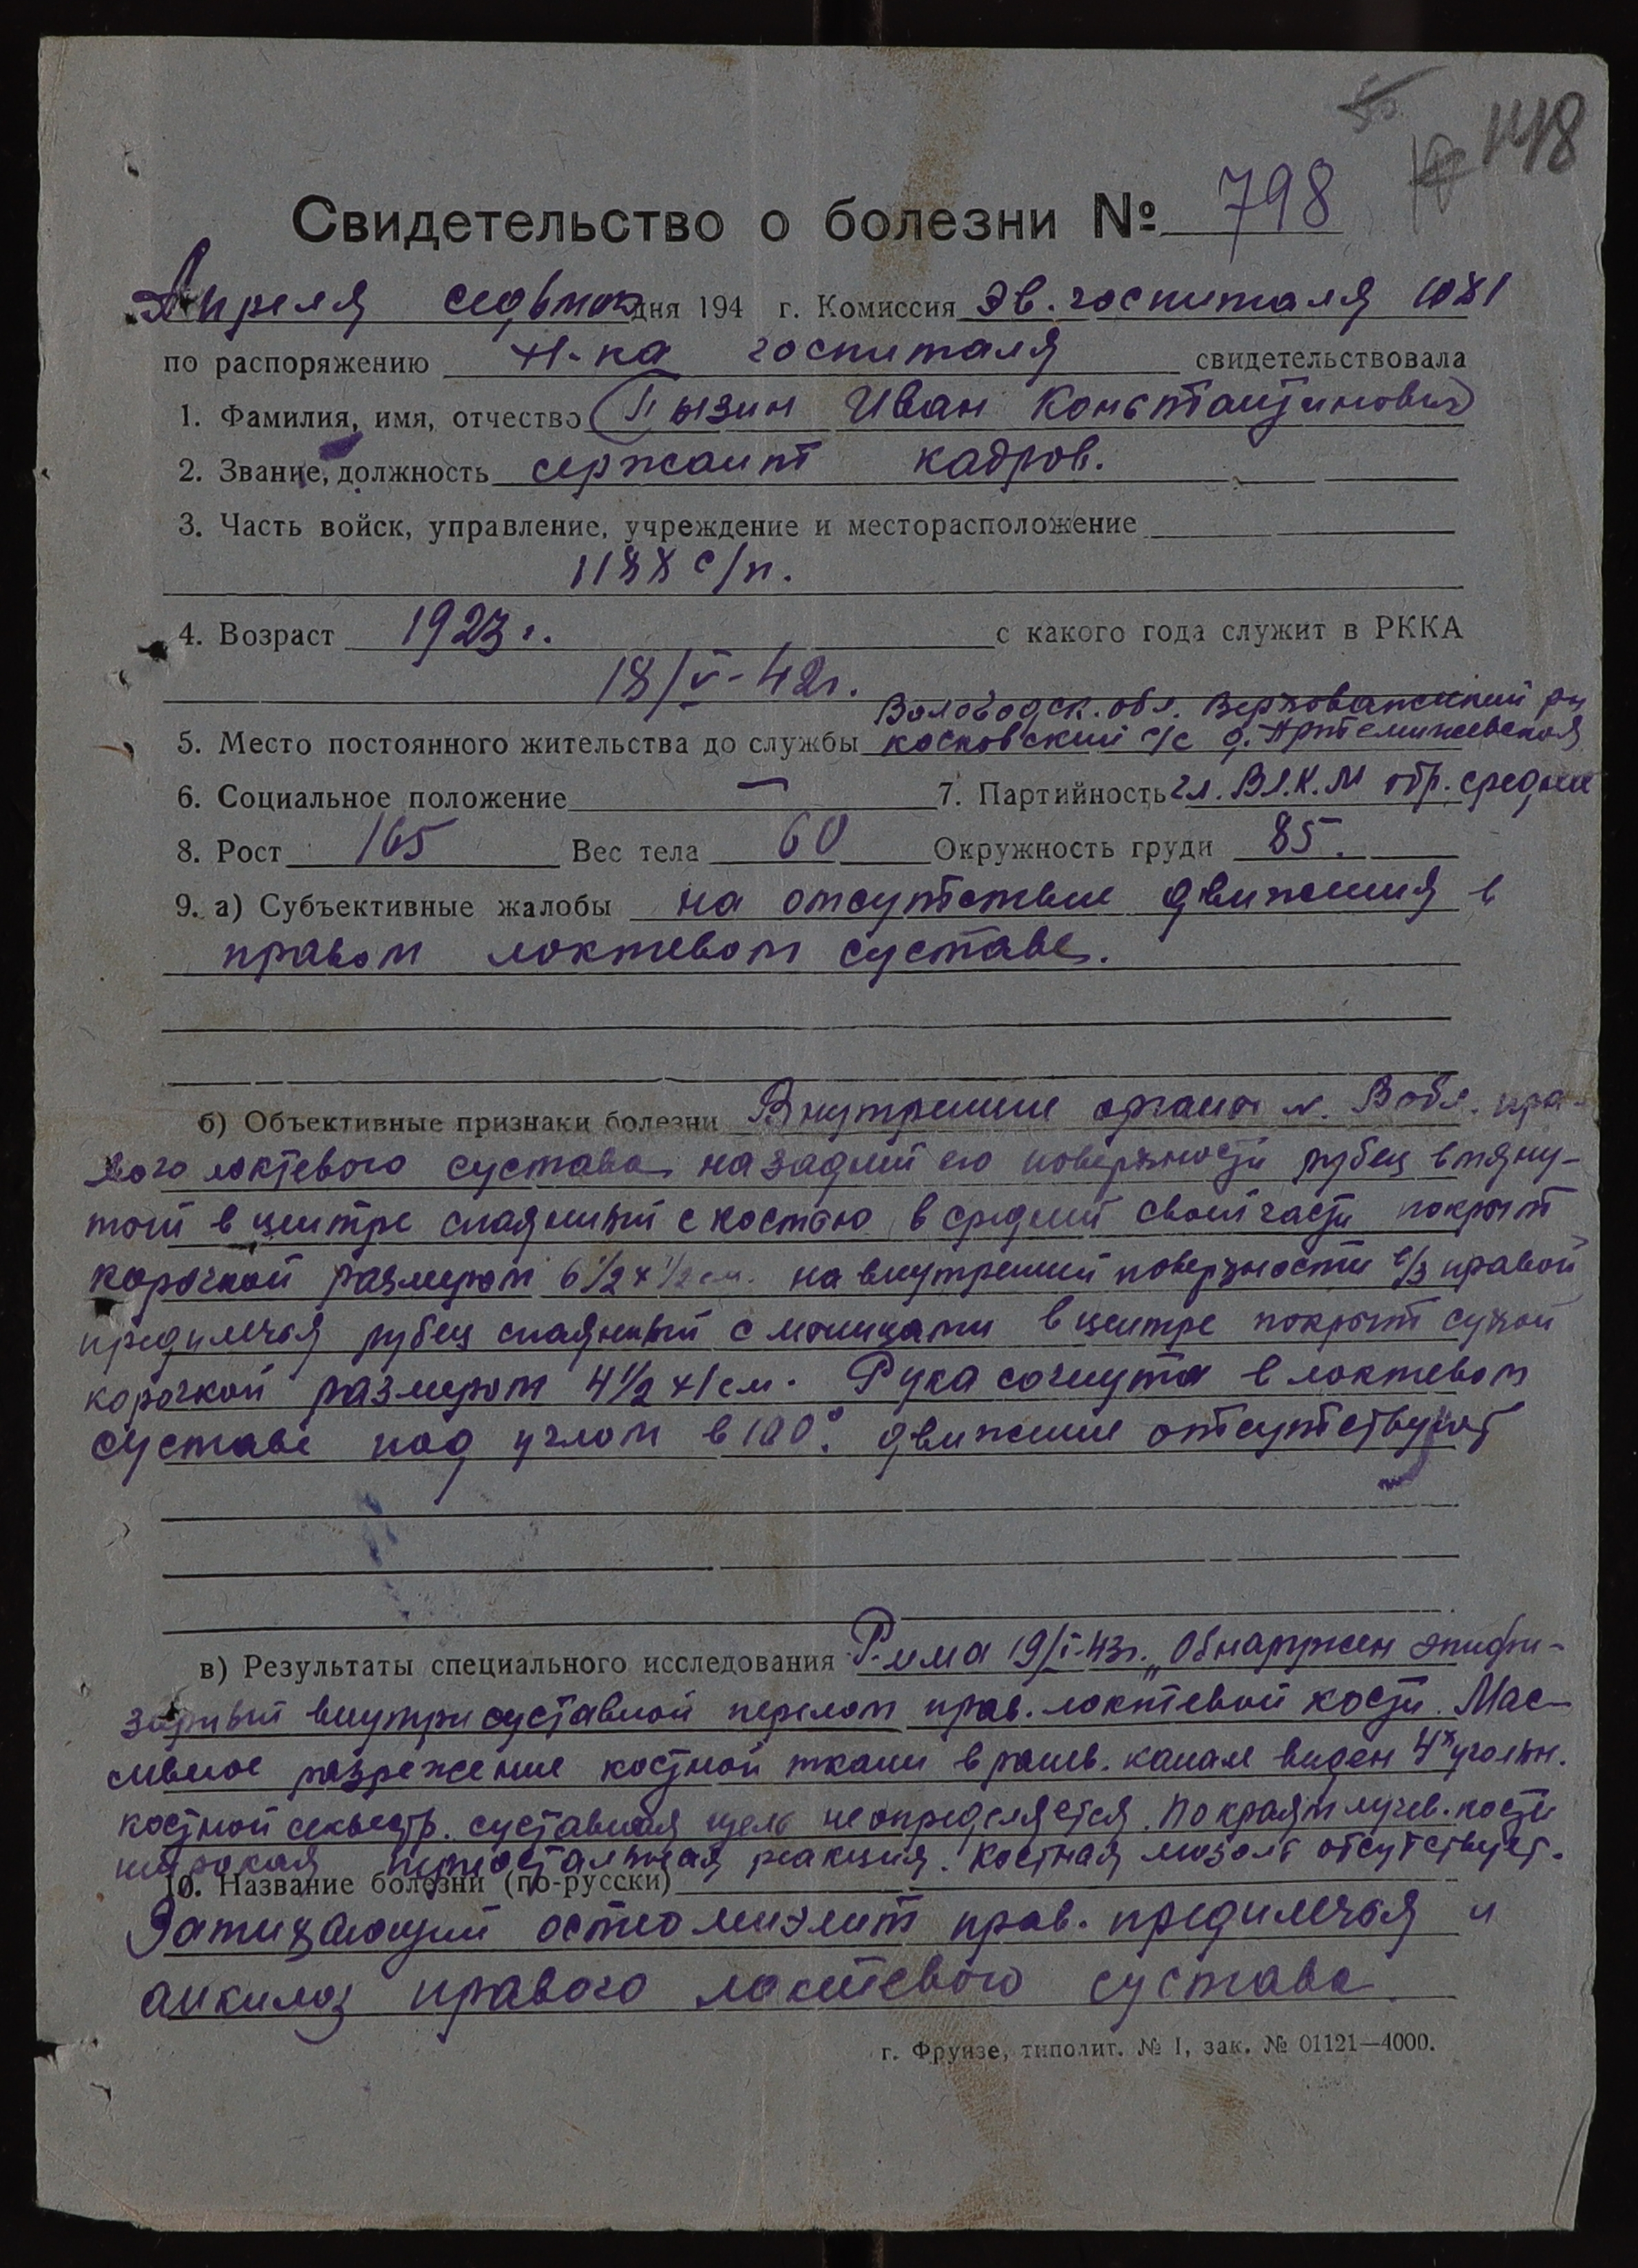 148
Свидетельство о болезни № 798
Апреля седьмого дня 194 г. Комиссия Эв. госпиталя 1081
по распоряжению Н-ка госпиталя свидетельствовала
1. Фамилия, имя, отчество Пызин Иван Константинович
2. Звание, должность сержант кадров.
3. Часть войск, управление, учреждение и месторасположение
1188 с/п.
4. Возраст 1923 г. с какого года служит в РККА
18/V-42г.
Вологодск. обл. Верховажский рн
5. Место постоянного жительства до службы косковский с/с д. Артемижевская
6. Социальное положение — 7. Партийность чл. ВЛ.К.М обр. средние
8. Рост 165 Вес тела 60 Окружность груди 85.
9. а) Субъективные жалобы на отсутствие движения в
правом локтевом суставе.
б) Объективные признаки болезни Внутренние органы N. В обл. пра-
вого локтевого сустава на задней его поверхности рубец втяну-
той в центре спаянный с костью в средней своей части покрыт
корочкой размером 6 1/2 х 1/2 см. на внутренней поверхности в/3 правой
предплечья рубец спаянный с мышцами в центре покрыт сухой
корочкой размером 4 1/2 х 1 см. Рука согнута в локтевом
суставе под углом в 100°. движение отсутствуют
в) Результаты специального исследования Р-мма 19/I-43г. „Обнаружен эпифи-
зарный внутрисуставной перелом прав. локтевой кости. Мас-
сивное разрежение костной ткани в ранев. канале виден 4х угольн.
костной секвестр. суставная щель не определяется. По краям лучев. кости
широкая периостальная реакция. Костная мозоль отсутствует.
10. Название болезни (по-русски)
Затихающий остеомиэлит прав. предплечья и
анкилоз правого локтевого сустава
г. Фрунзе, типолит. № 1, зак. № 01121—4000.